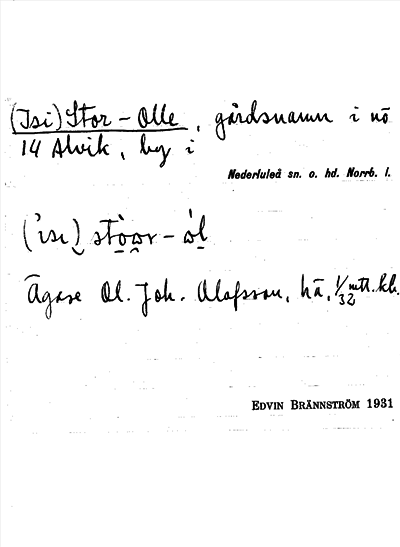 (Isi) Stor-Olle, gårdsnamn i nö
14 Alvik, by i
Nederluleå sn. o. hd. Norrb. l.
Ägare Ol. Joh. Olofsson, hä, 1/32 mtl. kb.
EDVIN BRÄNNSTRÖM 1931